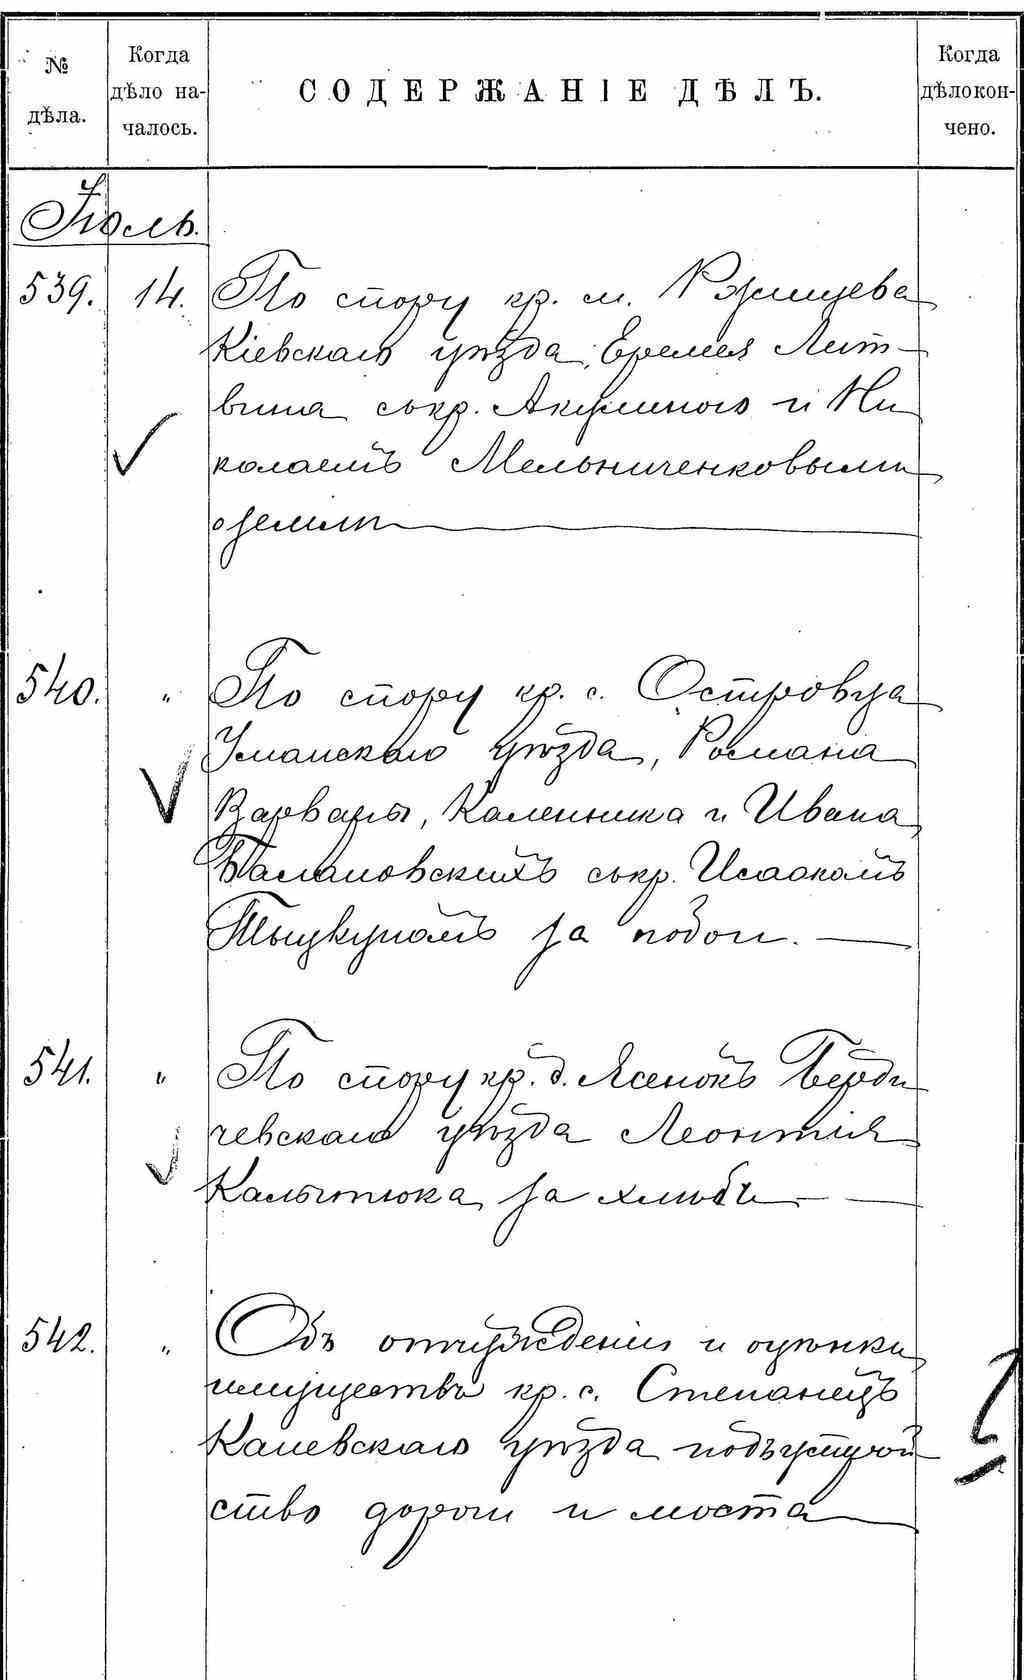 № дѣла.
Когда дѣло на-
чалось.
СОДЕРЖАНІЕ ДѢЛЪ.
Когда дѣло кон-
чено.
Іюль.
539. 14. По спору кр. м. Ржищева
Кіевскаго уѣзда, Еремея Лит-
вина съ кр. Акулиною и Ни
колаемъ Мельниченковыми
о землѣ
540. " По спору кр. с. Островца
Уманскаго уѣзда, Романа
Варвары, Каленика и Ивана
Балановскихъ съ кр. Исаакомъ
за побои.
541. " По спору кр. д. Ясенокъ Берди
чевскаго уѣзда Леонтія
за хлѣбъ
542. " Объ отчужденіи и оцѣнки
имущества кр. с. Степанецъ
Каневскаго уѣзда подъ устрой
ство дороги и моста